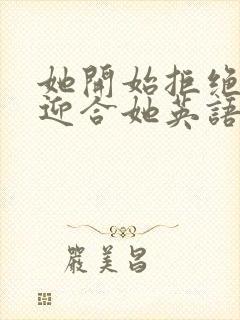 她開始拒絕
迎合她英語
嚴美昌